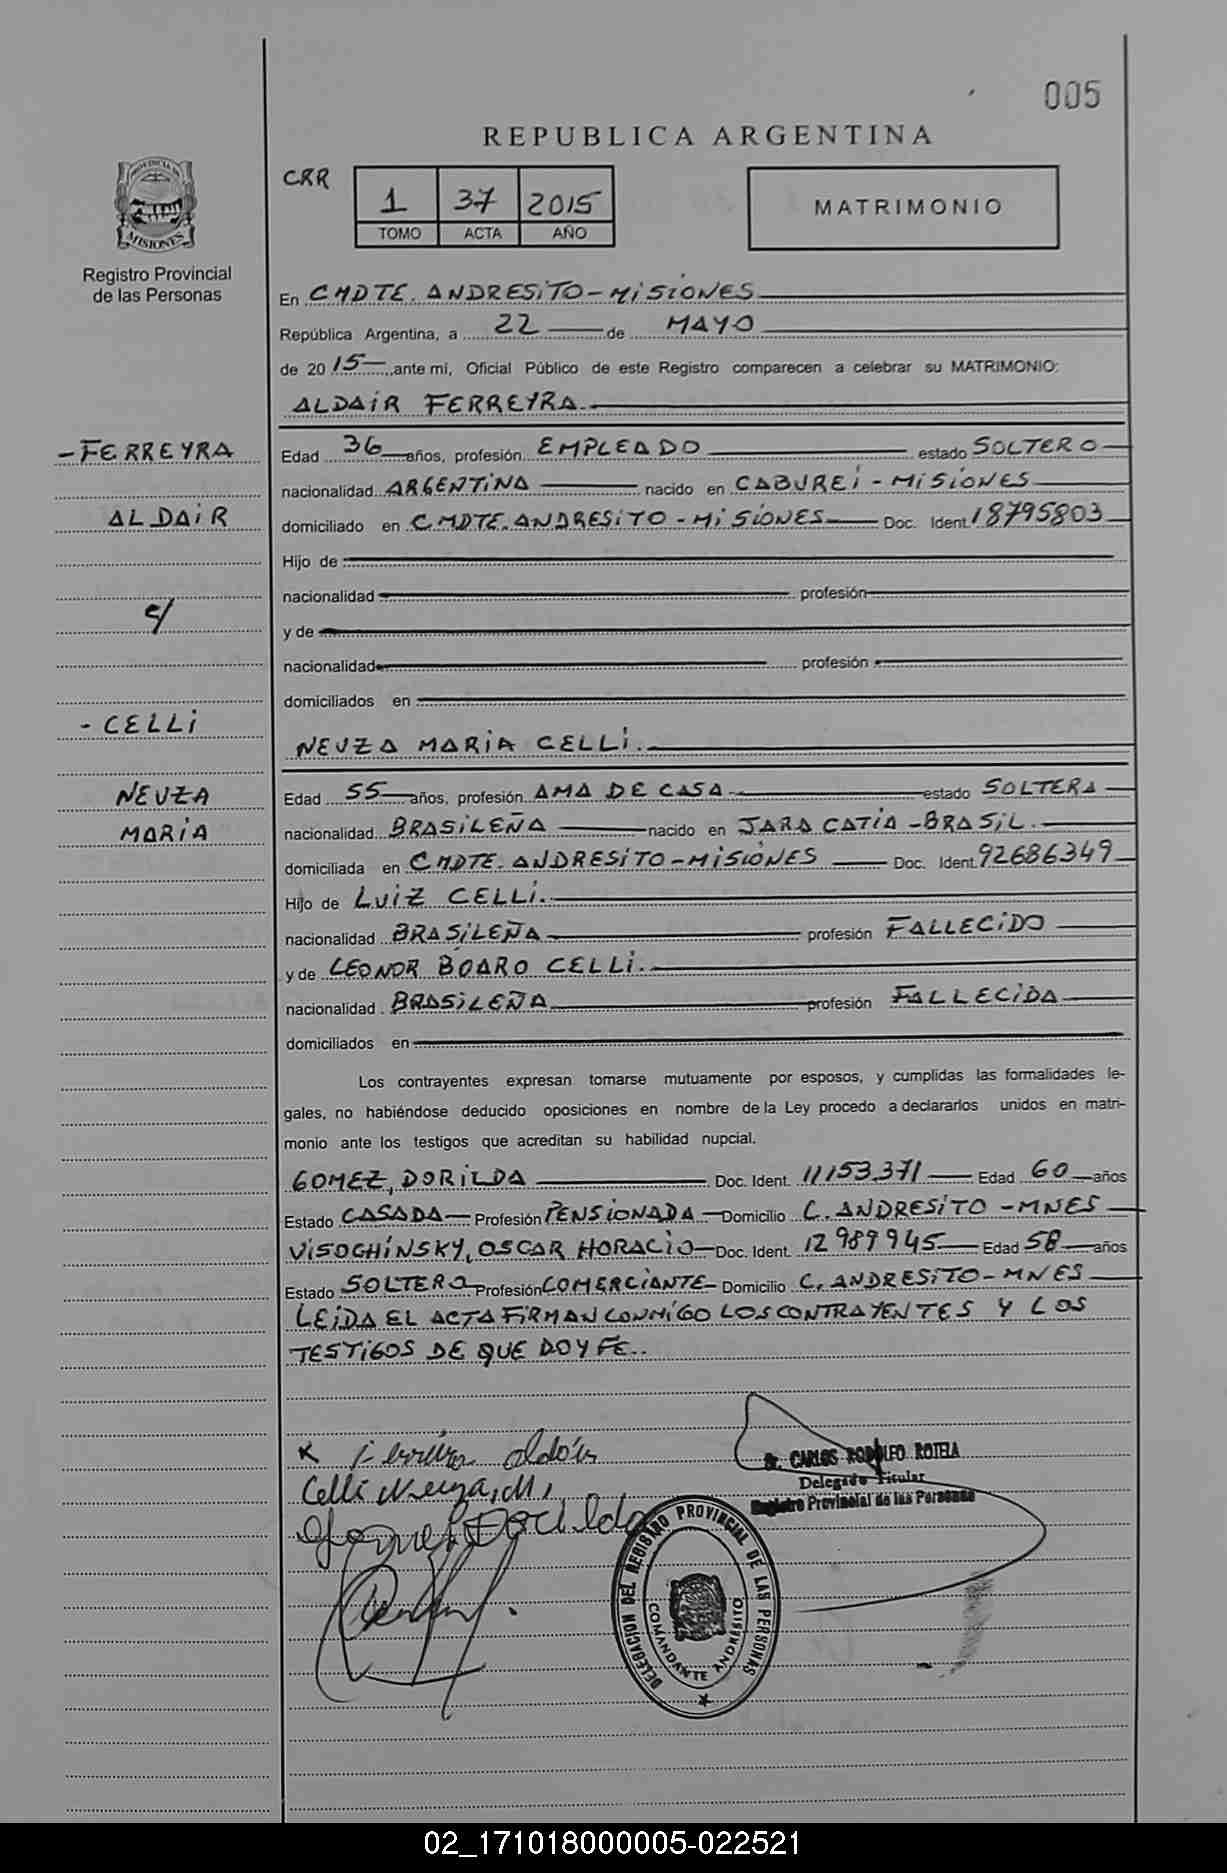 005
REPUBLICA ARGENTINA
CRR
1 37 2015
TOMO ACTA AÑO
MATRIMONIO
PROVINCIA DE
MISIONES
Registro Provincial
de las Personas
En CMDTE. ANDRESITO - MISIONES
República Argentina, a 22 de MAYO
de 2015 ante mí, Oficial Público de este Registro comparecen a celebrar su MATRIMONIO:
ALDAIR FERREYRA.
- FERREYRA
ALDAIR
c/
- CELLI
NEUZA
MARIA
Edad 36 años, profesión EMPLEADO estado SOLTERO
nacionalidad ARGENTINA nacido en CABUREI - MISIONES
domiciliado en CMDTE. ANDRESITO - MISIONES Doc. Ident. 18795803
Hijo de
nacionalidad profesión
y de
nacionalidad profesión
domiciliados en
NEUZA MARIA CELLI.
Edad 55 años, profesión AMA DE CASA estado SOLTERA
nacionalidad BRASILEÑA nacido en JARA CATIA - BRASIL.
domiciliada en CMDTE. ANDRESITO - MISIONES Doc. Ident. 92686349
Hijo de LUIZ CELLI.
nacionalidad BRASILEÑA profesión FALLECIDO
y de LEONOR BOARO CELLI.
nacionalidad BRASILEÑA profesión FALLECIDA
domiciliados en
Los contrayentes expresan tomarse mutuamente por esposos, y cumplidas las formalidades le-
gales, no habiéndose deducido oposiciones en nombre de la Ley procedo a declararlos unidos en matri-
monio ante los testigos que acreditan su habilidad nupcial.
GOMEZ, DORILDA Doc. Ident. 11153.371 Edad 60 años
Estado CASADA Profesión PENSIONADA Domicilio C. ANDRESITO - MNES
VISOCHINSKY, OSCAR HORACIO Doc. Ident. 12989945 Edad 58 años
Estado SOLTERO Profesión COMERCIANTE Domicilio C. ANDRESITO - MNES
LEIDA EL ACTA FIRMAN CONMIGO LOS CONTRAYENTES Y LOS
TESTIGOS DE QUE DOY FE..
x Ferreira aldáir
Celli Neuza, M,
Gomez Dorilda
Sr. CARLOS RODOLFO ROTELA
Delegado Titular
Registro Provincial de las Personas
DELEGACION DEL REGISTRO PROVINCIAL DE LAS PERSONAS
COMANDANTE ANDRESITO
02_171018000005-022521